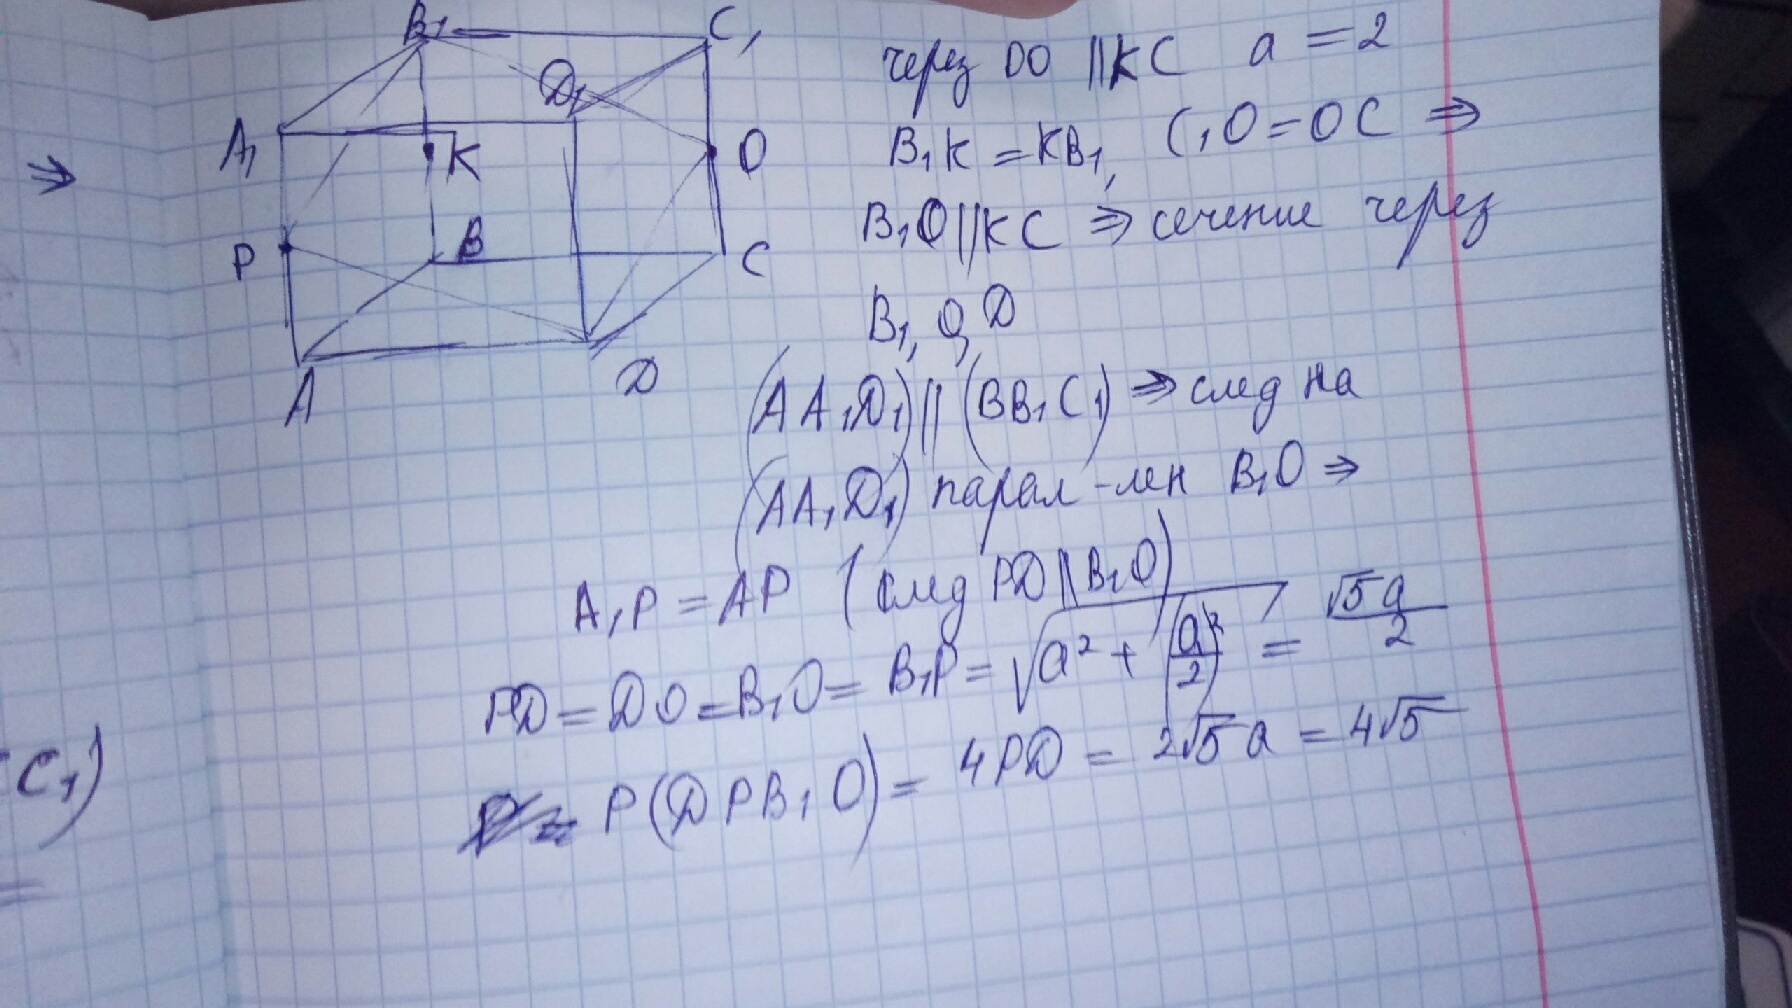 B₁ C₁
D₁
A₁ K O
P B C
A D
⇒
через DO || KC a = 2
B₁K = KB₁, C₁O = OC ⇒
B₁O || KC ⇒ сечение через
B₁, O, D
(AA₁D₁) || (BB₁C₁) ⇒ след на
(AA₁D₁) парал-лен B₁O ⇒
A₁P = AP (след PD || B₁O)
PD = DO = B₁O = B₁P = √(a² + (a/2)²) = √5a/2
P(DPB₁O) = 4PD = 2√5 a = 4√5
C₁)